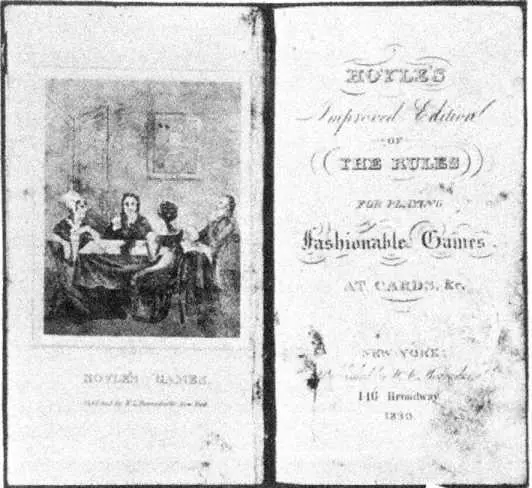 HOYLE'S GAMES.
Published by New York
HOYLE'S
Improved Edition
OF
THE RULES
FOR PLAYING
Fashionable Games
AT CARDS, &c.
NEW-YORK:
Published by W. C.
146 Broadway
1830.